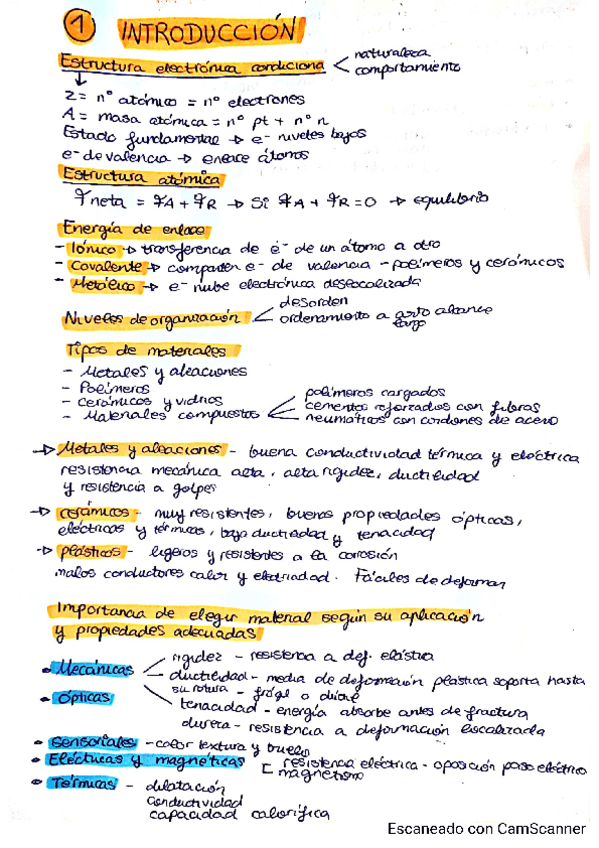 1 INTRODUCCIÓN
Estructura electrónica condiciona < naturaleza
comportamiento
↓
Z = nº atómico = nº electrones
A = masa atómica = nº pt + nº n
Estado fundamental → e- niveles bajos
e- de valencia → enlace átomos
Estructura atómica
Fneta = FA + FR → Si FA + FR = 0 → equilibrio
Energía de enlace
- Iónico → transferencia de e- de un átomo a otro
- Covalente → comparten e- de valencia - polímeros y cerámicos
- Metálico → e- nube electrónica deslocalizada
Niveles de organización < desorden
ordenamiento a corto alcance
largo
Tipos de materiales
- Metales y aleaciones
- Polímeros
- Cerámicos y vidrios
- Materiales compuestos < polímeros cargados
cementos reforzados con fibras
neumáticos con cordones de acero
→ Metales y aleaciones - buena conductividad térmica y eléctrica
resistencia mecánica alta, alta rigidez, ductilidad
y resistencia a golpes
→ cerámicos - muy resistentes, buenas propiedades ópticas,
eléctricas y térmicas, baja ductilidad y tenacidad
→ plásticos - ligeros y resistentes a la corrosión
malos conductores calor y electricidad. Fáciles de deformar
Importancia de elegir material según su aplicación
y propiedades adecuadas
• Mecánicas
rigidez - resistencia a def. elástica
ductilidad - media de deformación plástica soporta hasta
su rotura - frágil o dúctil
tenacidad - energía absorbe antes de fractura
dureza - resistencia a deformación localizada
• Ópticas
• Sensoriales - color textura y
• Eléctricas y magnéticas [ resistencia eléctrica - oposición paso eléctrico
magnetismo
• Térmicas - dilatación
conductividad
capacidad calorífica
Escaneado con CamScanner